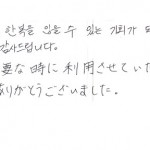 한복을 입을 수 있는 기회가 되
감사드립니다.
要な時に利用させていた
ありがとうございました。